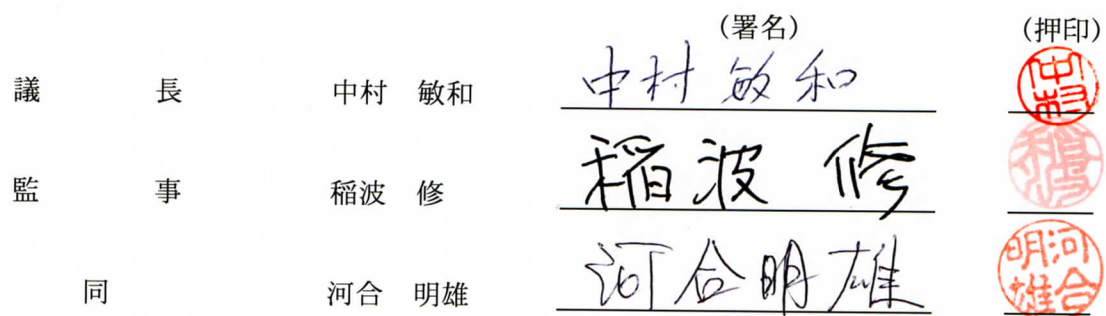 (署名) (押印)
議 長 中村 敏和 中村 敏和 中村
監 事 稲波 修 稲波 修
同 河合 明雄 河合明雄 河合明雄